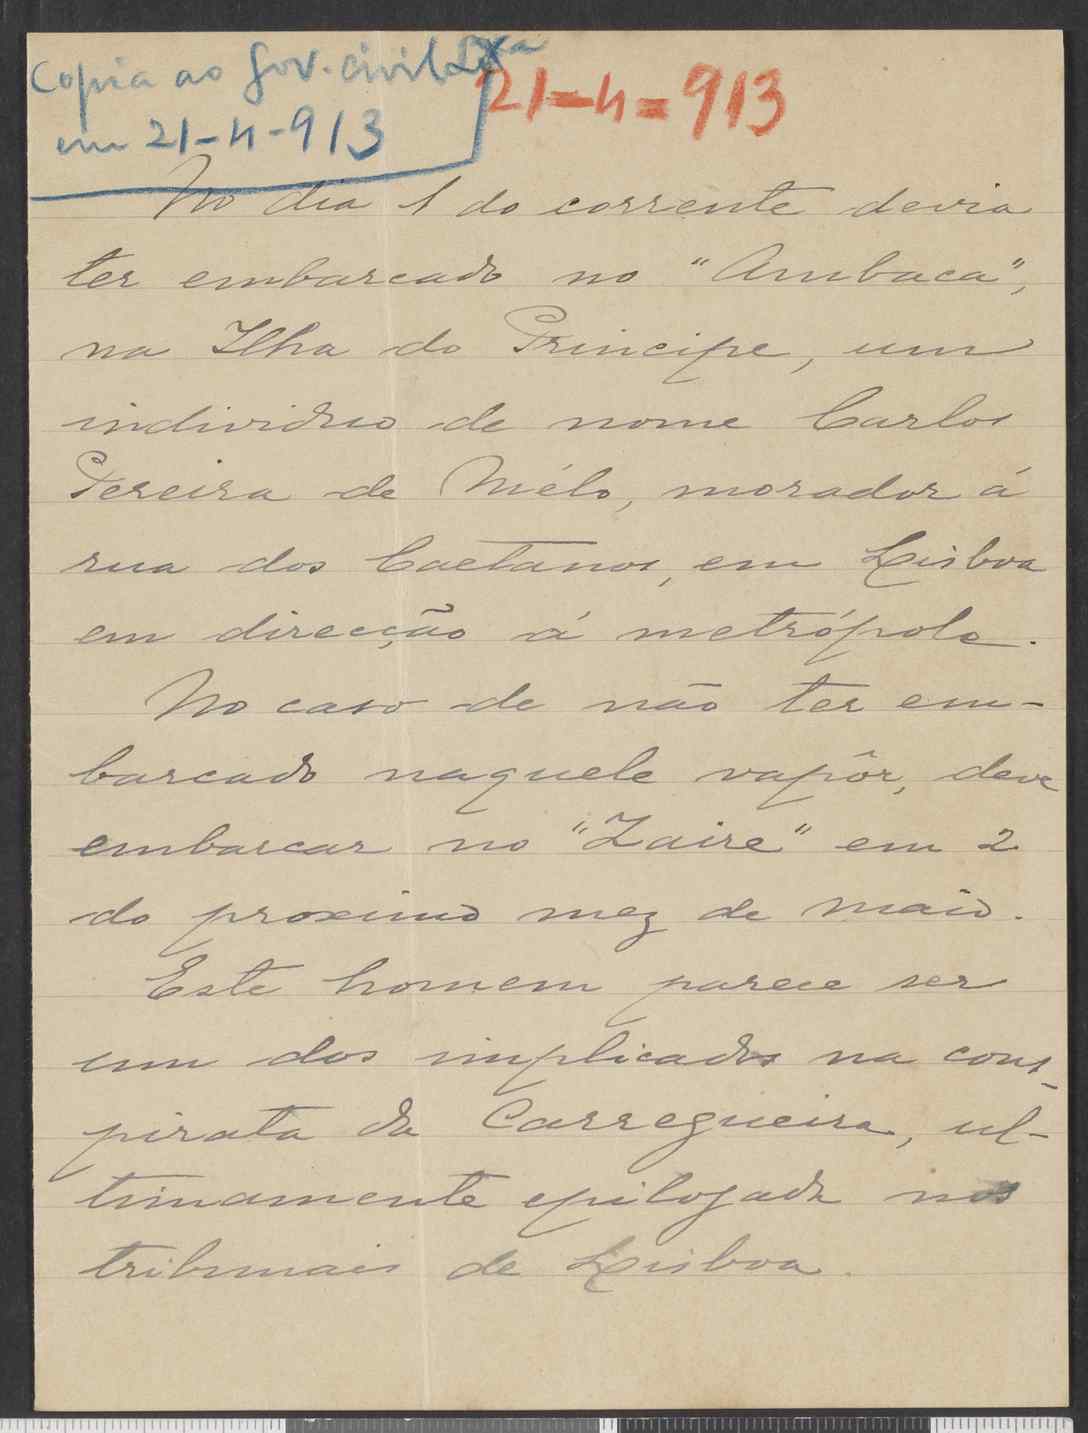 Copia ao Gov. civil Lxa
em 21-4-913
21=4=913
No dia 1 do corrente devia
ter embarcado no "Ambaca",
na Ilha do Principe, um
individuo de nome Carlos
Pereira de Mélo, morador á
rua dos Caetanos, em Lisboa
em direcção á metrópole.
No caso de não ter em-
barcado naquele vapôr, deve
embarcar no "Zaire" em 2
do proximo mez de maio.
Este homem parece ser
um dos implicados na cons-
pirata da Carregueira, ul-
timamente epilogada nos
tribunais de Lisboa.